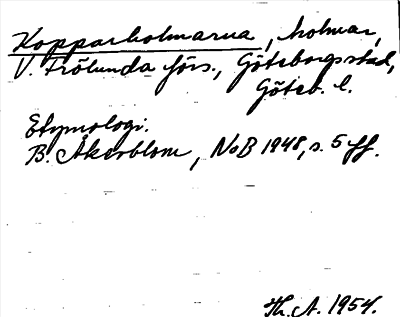 Kopparholmarna, holmar,
V. Frölunda förs., Göteborgs stad,
Göteb. l.
Etymologi.
B. Åkerblom, NoB 1948, s. 5 ff.
Th. A. 1954.